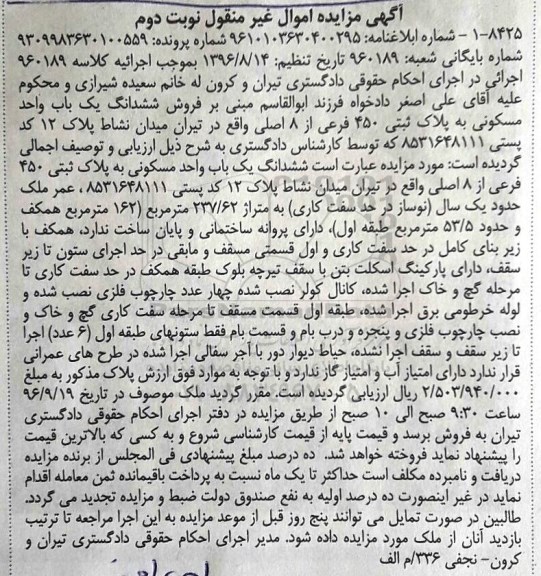 آگهی مزایده اموال غیر منقول نوبت دوم
۱-۸۴۲۵ - شماره ابلاغنامه: ۹۶۱۰۱۰۳۶۳۰۴۰۰۲۹۵ شماره پرونده: ۹۳۰۹۹۸۳۶۳۰۱۰۰۵۵۹
شماره بایگانی شعبه: ۹۶۰۱۸۹ تاریخ تنظیم: ۱۳۹۶/۸/۱۴ بموجب اجرائیه کلاسه ۹۶۰۱۸۹
اجرائی در اجرای احکام حقوقی دادگستری تیران و کرون له خانم سعیده شیرازی و محکوم
علیه آقای علی اصغر دادخواه فرزند ابوالقاسم مبنی بر فروش ششدانگ یک باب واحد
مسکونی به پلاک ثبتی ۴۵۰ فرعی از ۸ اصلی واقع در تیران میدان نشاط پلاک ۱۲ کد
پستی ۸۵۳۱۶۴۸۱۱۱ که توسط کارشناس دادگستری به شرح ذیل ارزیابی و توصیف اجمالی
گردیده است: مورد مزایده عبارت است ششدانگ یک باب واحد مسکونی به پلاک ثبتی ۴۵۰
فرعی از ۸ اصلی واقع در تیران میدان نشاط پلاک ۱۲ کد پستی ۸۵۳۱۶۴۸۱۱۱ ، عمر ملک
حدود یک سال (نوساز در حد سفت کاری) به متراژ ۲۳۷/۶۲ مترمربع (۱۶۲ مترمربع همکف
و حدود ۵۳/۵ مترمربع طبقه اول)، دارای پروانه ساختمانی و پایان ساخت ندارد، همکف با
زیر بنای کامل در حد سفت کاری و اول قسمتی مسقف و مابقی در حد اجرای ستون تا زیر
سقف، دارای پارکینگ اسکلت بتن با سقف تیرچه بلوک طبقه همکف در حد سفت کاری تا
مرحله گچ و خاک اجرا شده، کانال کولر نصب شده چهار عدد چارچوب فلزی نصب شده و
لوله خرطومی برق اجرا شده، طبقه اول قسمت مسقف تا مرحله سفت کاری گچ و خاک و
نصب چارچوب فلزی و پنجره و درب بام و قسمت بام فقط ستونهای طبقه اول (۶ عدد) اجرا
تا زیر سقف و سقف اجرا نشده، حیاط دیوار دور با آجر سفالی اجرا شده در طرح های عمرانی
قرار ندارد دارای امتیاز آب و امتیاز گاز ندارد و با توجه به موارد فوق ارزش پلاک مذکور به مبلغ
۲/۵۰۳/۹۴۰/۰۰۰ ریال ارزیابی گردیده است. مقرر گردید ملک موصوف در تاریخ ۹۶/۹/۱۹
ساعت ۹:۳۰ صبح الی ۱۰ صبح از طریق مزایده در دفتر اجرای احکام حقوقی دادگستری
تیران به فروش برسد و قیمت پایه از قیمت کارشناسی شروع و به کسی که بالاترین قیمت
را پیشنهاد نماید فروخته خواهد شد. ده درصد مبلغ پیشنهادی فی المجلس از برنده مزایده
دریافت و نامبرده مکلف است حداکثر تا یک ماه نسبت به پرداخت باقیمانده ثمن معامله اقدام
نماید در غیر اینصورت ده درصد اولیه به نفع صندوق دولت ضبط و مزایده تجدید می گردد.
طالبین در صورت تمایل می توانند پنج روز قبل از موعد مزایده به این اجرا مراجعه تا ترتیب
بازدید آنان از ملک مورد مزایده داده شود. مدیر اجرای احکام حقوقی دادگستری تیران و
کرون- نجفی ۳۳۶/م الف